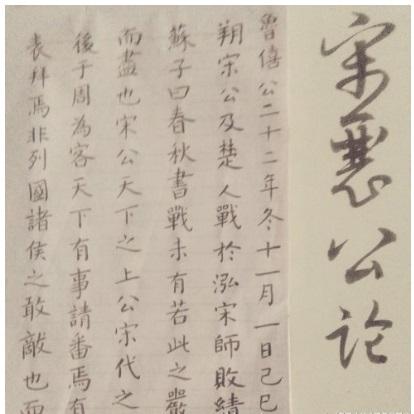 宋襄公论
魯僖公二十二年冬十一月一日己巳
翔宋公及楚人戰於泓宋師敗績
蘇子曰春秋書戰未有若此之嚴
而盡也宋公天下之上公宋代之
後于周為客天下有事請番焉有
表拜焉非列國諸侯之敢敵也而